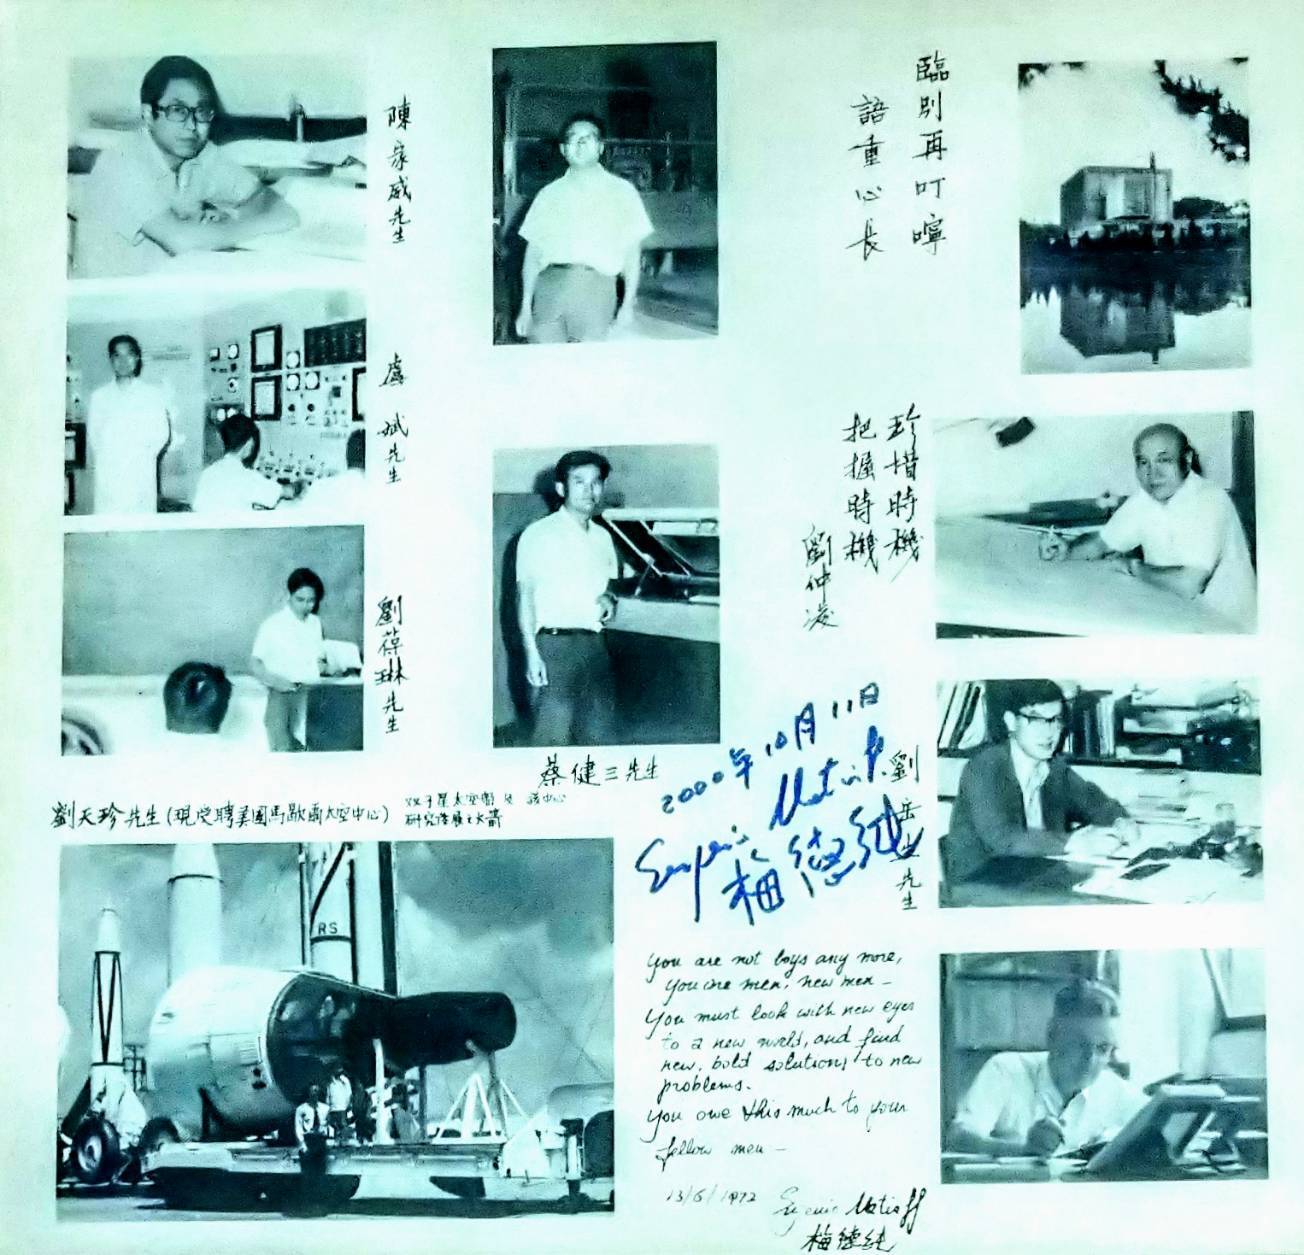 臨別再叮嚀
語重心長
陳家威先生
盧斌先生
劉葆琳先生
珍惜時機
把握時機
劉仲凌
蔡健三先生
劉天珍先生(現受聘美國馬歇爾太空中心)
双子星太空船及該中心
研究發展之火箭
RS
2000年10月11日
梅德純
劉岳先生
you are not boys any more,
you are men, new men -
You must look with new eyes
to a new world, and find
new, bold solutions, to new
problems.
you owe this much to your
fellow men -
13/6/1972 Eugenio Matioff
梅德純